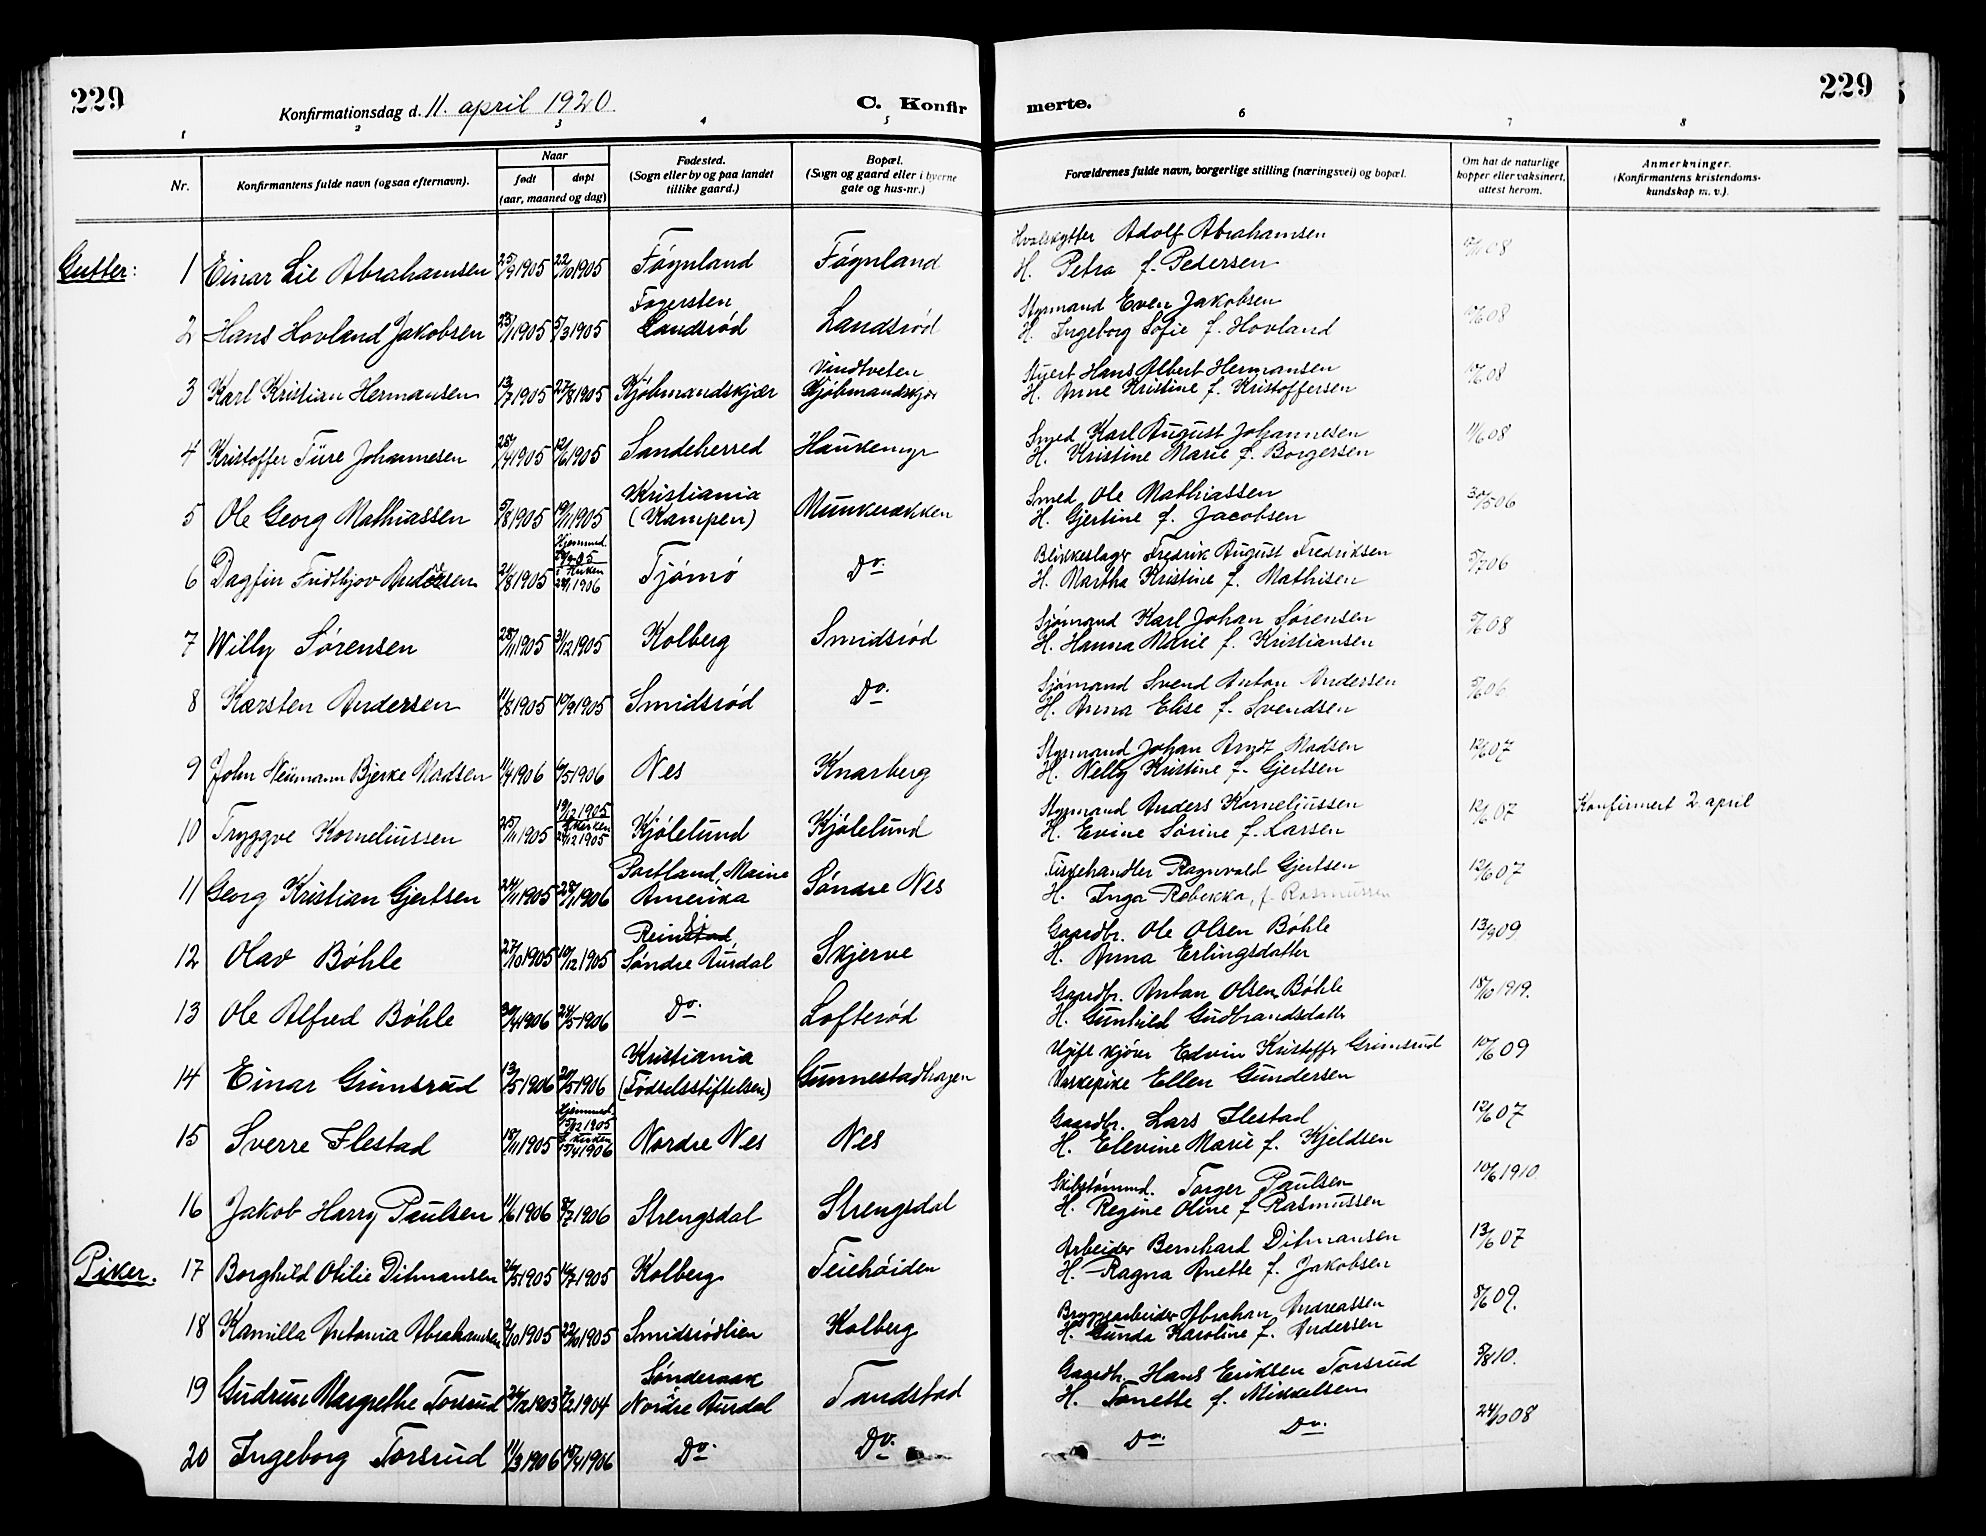 229
Konfirmationsdag d. 11. april 1920.
C. Konfir
merte.
229
1 2 3 4 5 6 7 8
Nr.
Konfirmantens fulde navn (ogsaa efternavn).
Naar
født døpt
(aar, maaned og dag)
Fødested.
(Sogn eller by og paa landet
tillike gaard.)
Bopæl.
(Sogn og gaard eller i byerne
gate og hus-nr.)
Forældrenes fulde navn, borgerlige stilling (næringsvei) og bopæl.
Om har de naturlige
kopper eller vaksinert,
attest herom.
Anmerkninger.
(Konfirmantens kristendoms-
kundskap m. v.).
Hvalskytter Adolf Abrahamsen
Gutter: 1 Einar Lie Abrahamsen 25/9 1905 22/10 1905 Føynland Føynland H. Petra f. Pedersen 08
Fagersten Styrmand Even Jakobsen
2 Hans Hovland Jakobsen 23/1 1905 5/3 1905 Landsrød Landsrød H. Ingeborg Sofie f. Hovland 08
Vindtveten Stuert Hans Albert Hermansen
3 Karl Kristian Hermansen 13/7 1905 27/8 1905 Kjøbmandskjær Kjøbmandskjær H. Anne Kristine f. Kristoffersen 08
Smed Karl August Johannesen
4 Kristoffer Türe Johannesen 28/4 1905 12/6 1905 Sandeherred Haukemyr H. Kristine Marie f. Borgersen 11/6 08
Kristiania Smed Ole Mathiassen
5 Ole Georg Mathiassen 5/8 1905 19/11 1905 (Kampen) Munkerækken H. Gjertine f. Jacobsen 30/5 06
Hjemmed. Blikkeslager Fredrik August Fredriksen
6 Dagfin Fridthjov Andersen 21/8 1905 i Kirken 1906 Tjømø Do. H. Martha Kristine f. Mathisen 5/7 06
Sjømand Karl Johan Sørensen
7 Willy Sørensen 28/1 1905 31/12 1905 Kolberg Smidsrød H. Hanna Marie f. Kristiansen 08
Sjømand Svend Anton Andersen
8 Karsten Andersen 11/8 1905 17/9 1905 Smidsrød Do. H. Anna Elise f. Svendsen 06
Styrmand Johan Arndt Madsen
9 John Neümann Bjerke Madsen 11/4 1906 6/5 1906 Nes Knarberg H. Nelly Kristine f. Gjertsen 12/6 07
19/12 1905 Styrmand Anders Korneliussen
10 Tryggve Korneliussen 25/11 1905 i Kirken 26/12 1905 Kjølelund Kjølelund H. Evine Sørine f. Larsen 12/6 07 Konfirmert 2. april
Portland, Maine Fiskehandler Ragnvald Gjertsen
11 Georg Kristian Gjertsen 24/11 1905 28/1 1906 Amerika Søndre Nes H. Inga Rebekka, f. Rasmussen 12/6 07
Gaardbr. Ole Olsen Bøhle
12 Olav Bøhle 27/10 1905 10/12 1905 Søndre Aurdal Skjerve H. Anna Erlingsdatter 13/9 09
Gaardbr. Anton Olsen Bøhle
13 Ole Alfred Bøhle 30/4 1906 24/5 1906 Do. Lofterød H. Gunhild Gudbrandsdatter 18/10 1919.
Kristiania Ugift kjører Edvin Kristoffer Grimsrud
14 Einar Grimsrud 13/5 1906 20/5 1906 (Fødselsstiftelsen) Gunnestadhagen Vaskepike Ellen Gundersen 10/6 09
Hjemmed. 15/12 1905 Gaardbr. Lars Ilestad
15 Sverre Ilestad 18/11 1905 i Kirken 15/4 1906 Nordre Nes Nes H. Elevine Marie f. Kjeldsen 12/6 07
Skibstømmd. Torger Paulsen
16 Jakob Harry Paulsen 11/6 1906 8/7 1906 Strengsdal Strengsdal H. Regine Oline f. Rasmussen 10/6 1910.
Arbeider Bernhard Ditmansen
Piker. 17 Borghild Otilie Ditmansen 26/5 1905 16/7 1905 Kolberg Teiehøiden H. Ragna Anette f. Jakobsen 13/6 07
Bryggearbeider Abraham Andreassen
18 Kamilla Antonia Abrahamsen 2/10 1905 22/10 1905 Smidsrødlien Kolberg H. Gunda Karoline f. Andersen 8/6 09.
Sønderaak Gaardbr. Hans Eriksen Torsrud
19 Gudrun Margrethe Torsrud 24/12 1903 7/2 1904 Nordre Aurdal Tandstad H. Tonette f. Mikkelsen 5/8 10.
20 Ingeborg Torsrud 11/3 1906 15/4 1906 Do. Do. Do. Do. 24/10 08